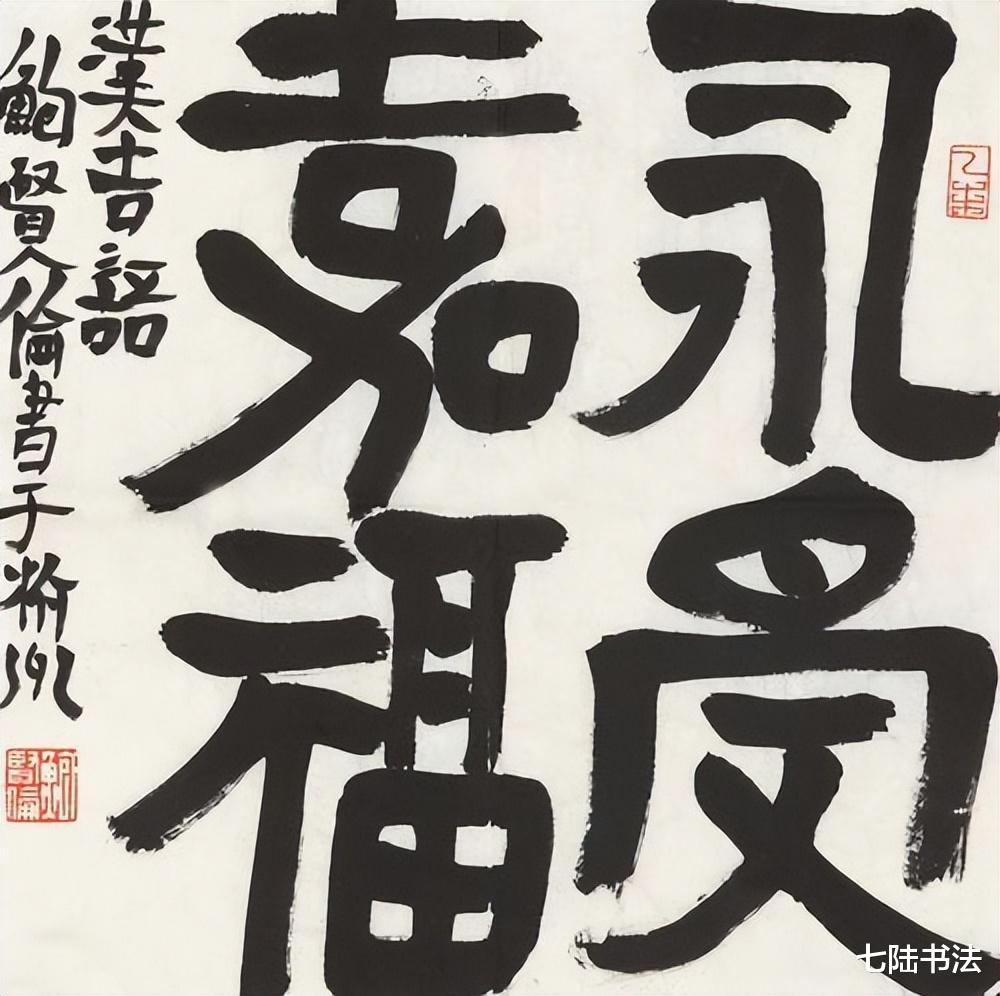 永受
嘉福
漢吉語
鮑賢倫書于州
乙未
鮑賢倫
七陆书法